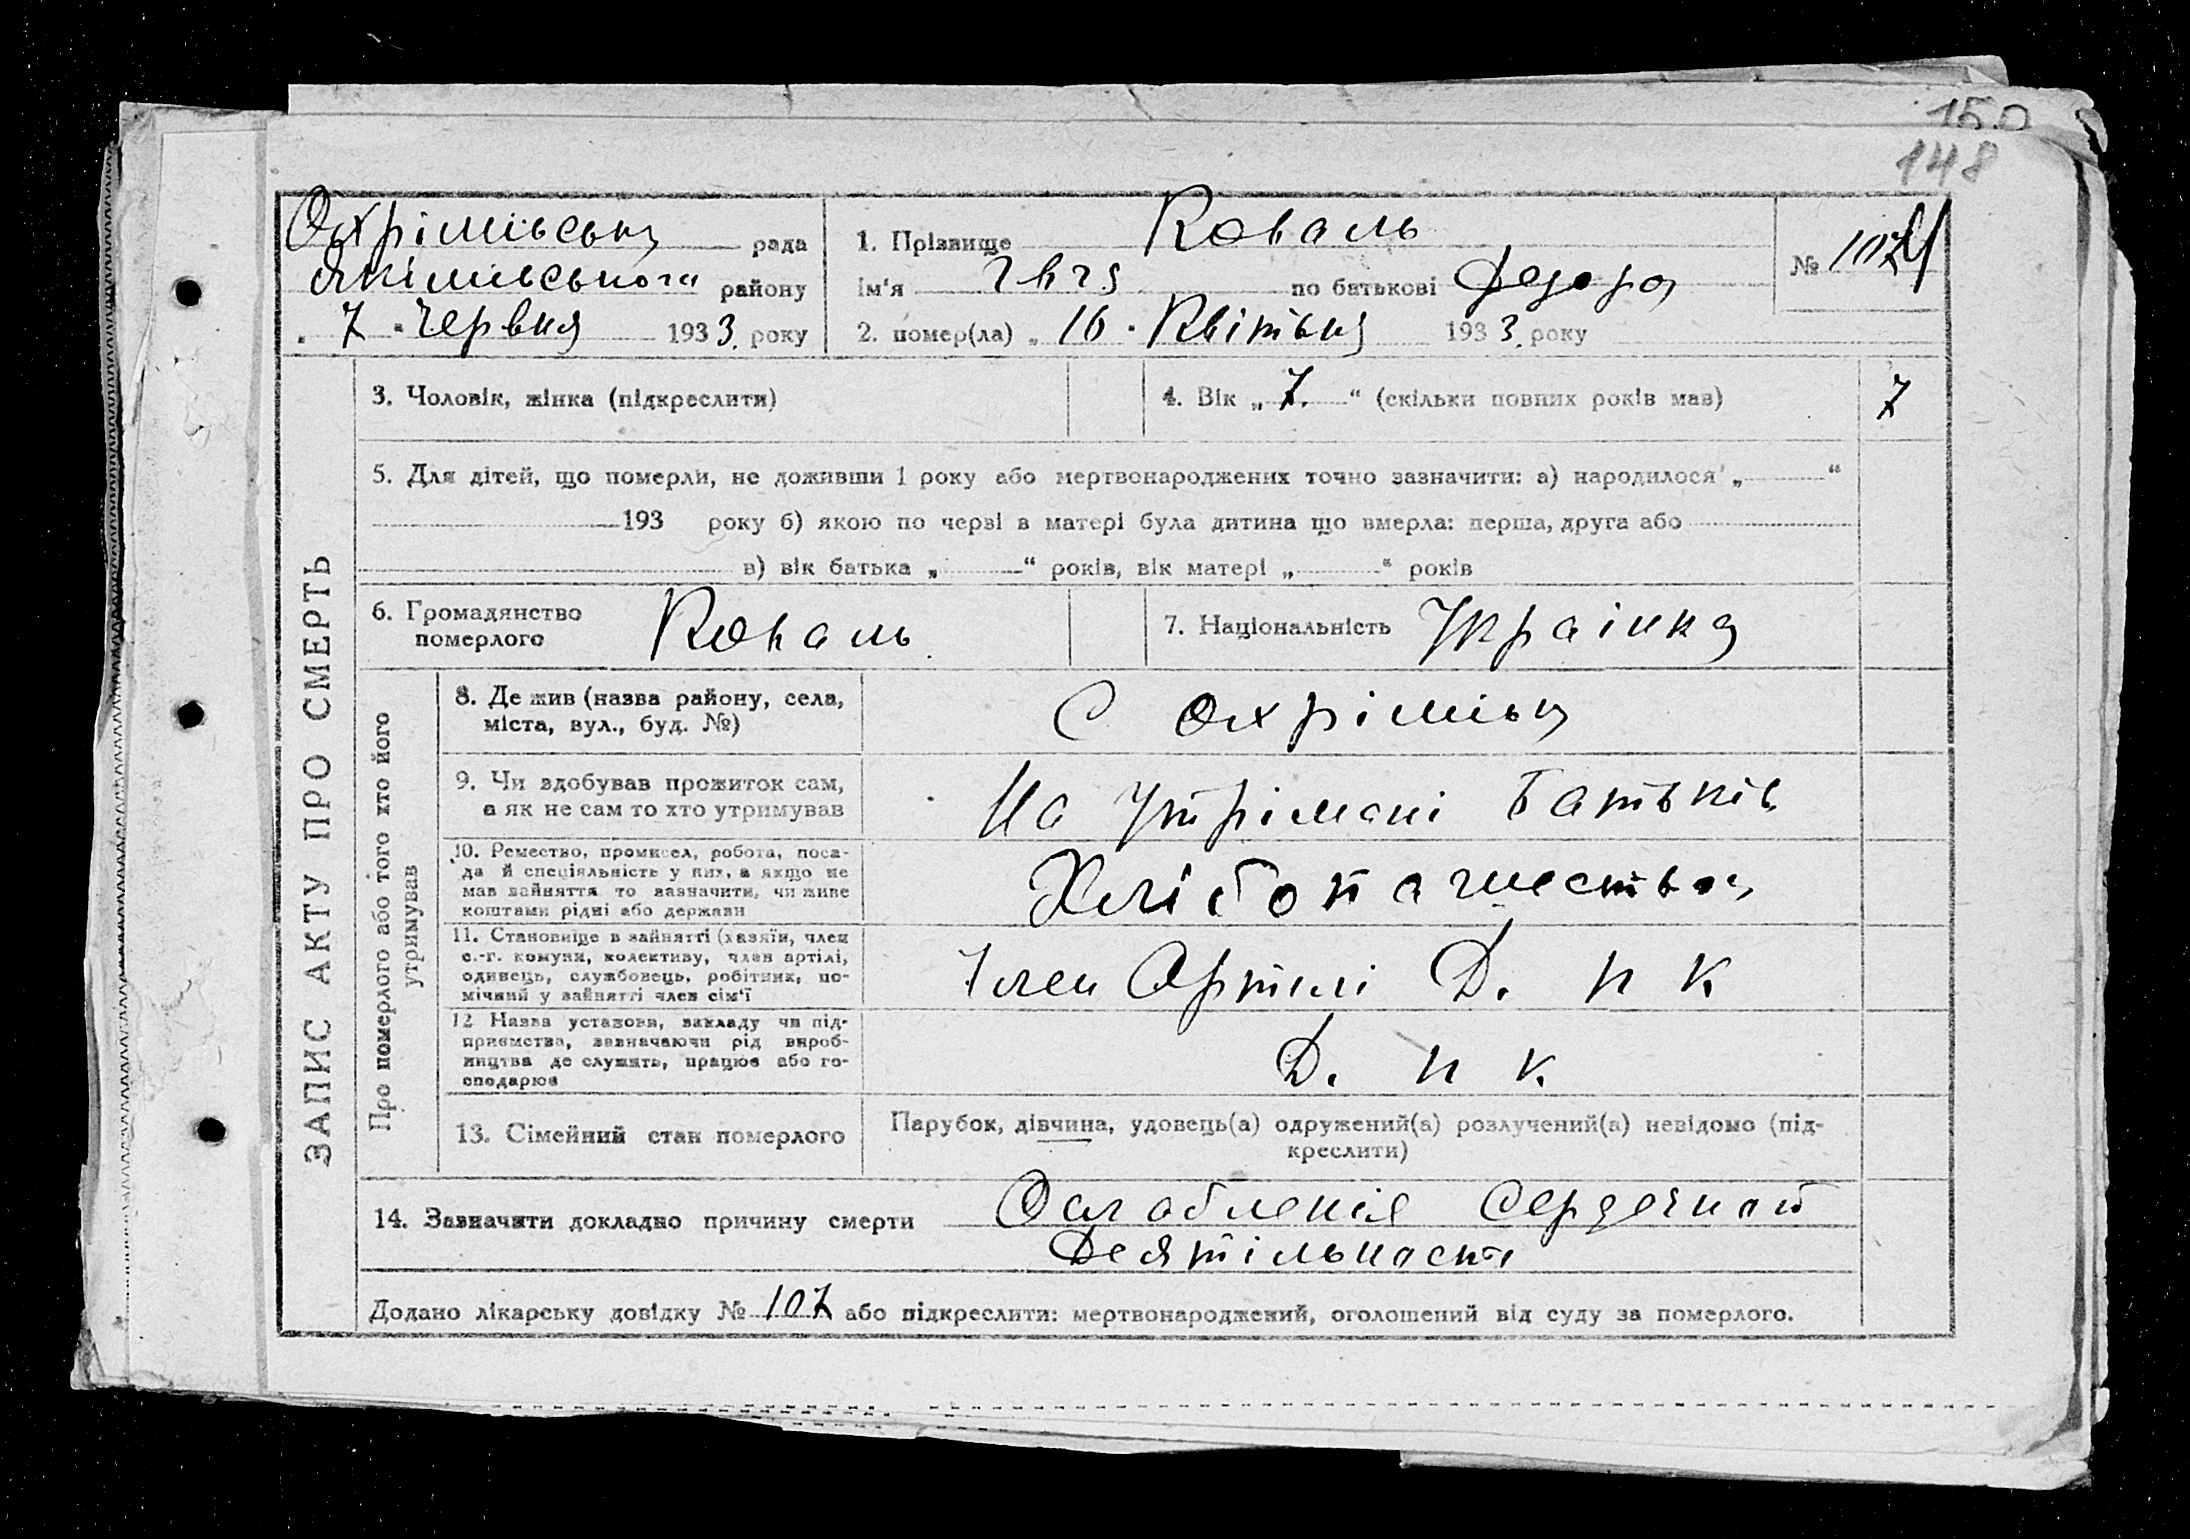 150
148
Охрімівська рада
Якімівського району
" 7 " Червня 1933 року
1. Прізвище Коваль
ім'я по батькові Федора
2. помер(ла) „ 16 " Квітня 1933 року
№
ЗАПИС АКТУ ПРО СМЕРТЬ
3. Чоловік, жінка (підкреслити)
4. Вік „ 7. “ (скільки повних років мав)
7
5. Для дітей, що померли, не доживши 1 року або мертвонароджених точно зазначити: а) народилося „ “
193 року б) якою по черзі в матері була дитина що вмерла: перша, друга або
в) вік батька „ “ років, вік матері „ “ років
6. Громадянство
померлого Коваль
7. Національність Украінка
Про померлого або того хто його
утримував
8. Де жив (назва району, села,
міста, вул., буд. №)
С Охрімівка
9. Чи здобував прожиток сам,
а як не сам то хто утримував
На утрімані Батьків
10. Ремество, промисел, робота, поса-
да й спеціяльність у них, а якщо не
мав зайняття то зазначити, чи живе
коштами рідні або держави
Хлібопашество
11. Становище в зайнятті (хазяїн, член
с.-г. комуни, колективу, член артілі,
одинець, службовець, робітник, по-
мічний у зайнятті член сім'ї
Член Артілі Д. Н К
12 Назва установи, закладу чи під-
приємства, зазначаючи рід вироб-
ництва де служить, працює або го-
сподарює
Д. Н К.
13. Сімейний стан померлого
Парубок, дівчина, удовець(а) одружений(а) розлучений(а) невідомо (під-
креслити)
14. Зазначити докладно причину смерти Ослабленіе Сердечной
Деятільності
Додано лікарську довідку № 107 або підкреслити: мертвонароджений, оголошений від суду за померлого.